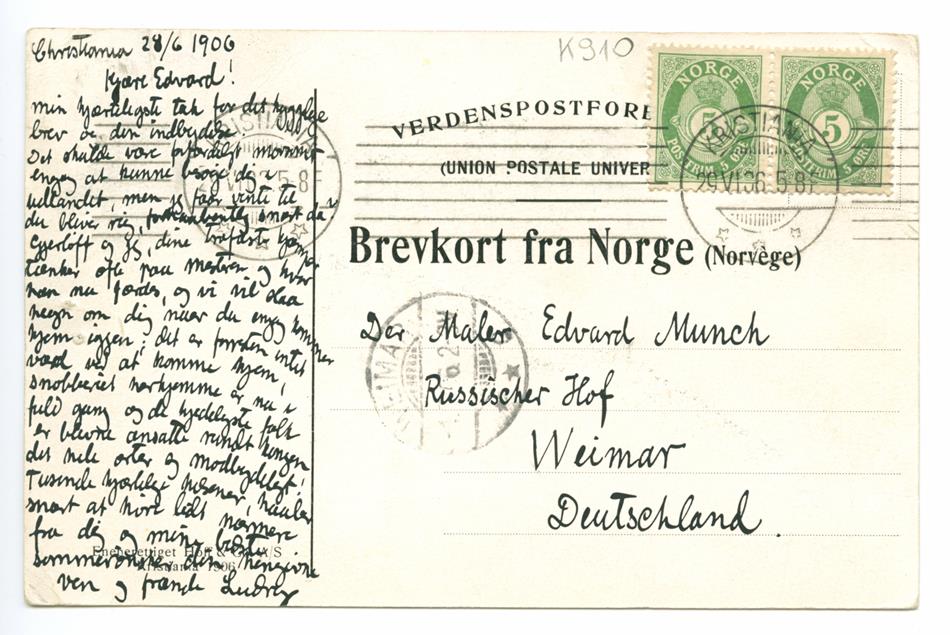 K910
Christiania 28/6 1906
Kjære Edvard!
min hjerteligste tak for det hyggelige
brev og din indbydelse.
Det skulde være morsomt
engang at kunne besøge dig i
udlandet, men jeg faar vente til
du bliver rig, snart da
og jeg, dine trofaste
tænker ofte paa mesteren og hvor
han nu færdes, og vi vil daa
om dig naar du engang kommer
hjem iggen; det er forresten intet
værd ved at komme hjem,
snobberiet herhjemme er nu i
fuld gang og de kjedeligste folk
er blevne ansatte rundt kongen
det hele er modbydeligt,
Tusende hjertelige hilsener, haaber
snart at høre lidt nærmere
fra dig og mine bedste
sommerønsker din hengivne
ven og frænde Ludvig
Eneberettiget Høff & Co. A/S
Kristiania 1906
VERDENSPOSTFORE
(UNION POSTALE UNIVER
Brevkort fra Norge (Norvège)
Der Maler Edvard Munch
Russischer Hof
Weimar
Deutschland.
NORGE
5
POSTFRIM. 5 ØRE
NORGE
5
POSTFRIM. 5 ØRE
KRISTIANIA
29 VI 06 5-8 F
KRISTIANIA
29 VI 06 5-8 F